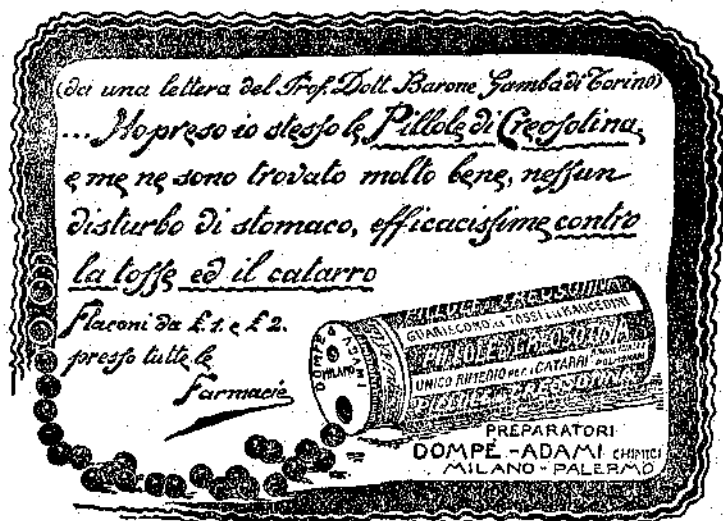 (da una lettera del Prof. Dott. Barone Gamba di Torino)
... Ho preso io stesso le Pillole di Creosotina,
e me ne sono trovato molto bene, nessun
disturbo di stomaco, efficacissime contro
la tosse ed il catarro
Flaconi da £.1. e £ 2.
presso tutte le
Farmacie
DOMPÈ ADAMI
MILANO
PILLOLE DI CREOSOTINA
GUARISCONO LE TOSSI E LE RAUCEDINI
PILLOLE DI CREOSOTINA
UNICO RIMEDIO PER I CATARRI
PREPARATORI
DOMPÉ-ADAMI CHIMICI
MILANO-PALERMO